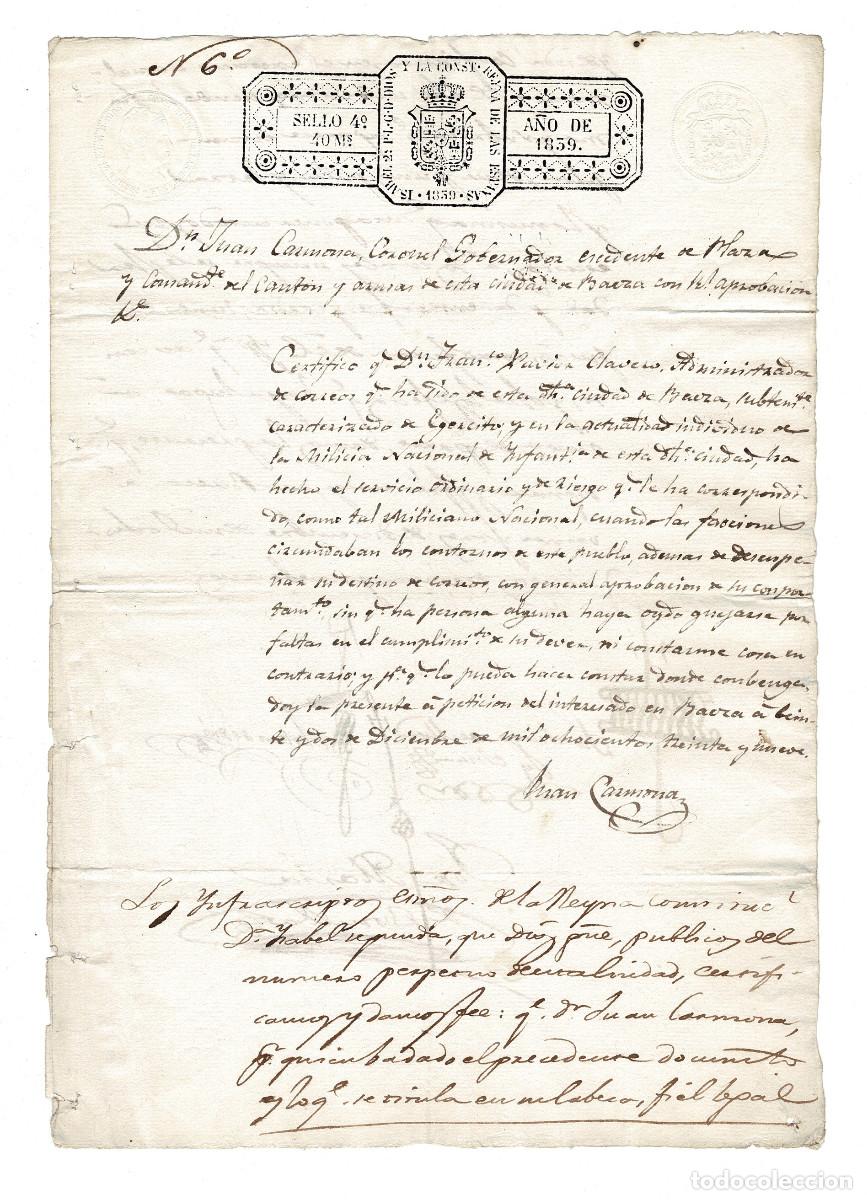 N 6º
SELLO 4º
40 Ms
ISABEL 2ª P·L·G·D·DIOS Y LA CONST· REINA DE LAS ESPAÑAS · 1839 ·
AÑO DE
1839.
Dn. Juan Carmona, Coronel Gobernador escedente de Plaza
y Comandte. del Canton y armas de esta ciudad de Baeza con Rl. aprobacion
&c.
Certifico q. Dn. Franco. Xavier Clavero, Administrador
de correos q. ha sido de esta dha. ciudad de Baeza, subtente.
caracterizado de Egercito, y en la actualidad individuo de
la Milicia Nacional de Infantia. de esta dha. ciudad, ha
hecho el servicio ordinario y de riesgo q. le ha correspondi-
do, como tal Miliciano Nacional, cuando las faciones
circundaban los contornos de este pueblo, ademas de desempe-
ñar su destino de correos, con general aprobacion de su compor-
tamto. sin q. ha persona alguna haya oydo quejarse por
faltas en el cumplimto. de su dever, ni constarme cosa en
contrario; y pa. q. lo pueda hacer constar donde combenga
doy la presente á peticion del interesado en Baeza á bein-
te y dos de Diciembre de mil ochocientos treinta y nueve.
Juan Carmona
Los Ynfrascriptos esnos. de la Reyna
Da. Ysabel segunda, que Dios gue, publicos del
numero perpetuo de esta ciudad, certifi-
camos y damos fee: qe. dn. Juan Carmona,
pr. quien ba dado el precedente documto
y lo qe. se titula en su cabeza, fiel legal
todocoleccion